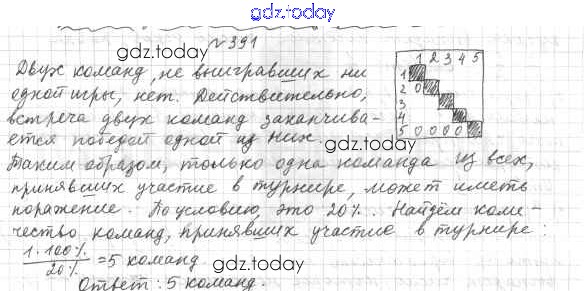 gdz.today
№391
gdz.today
Двух команд, не выигравших ни
одной игры, нет. Действительно,
встреча двух команд заканчива-
ется победой одной из них.
gdz.today
Таким образом, только одна команда из всех,
принявших участие в турнире, может иметь
поражение. По условию, это 20%. Найдём коли-
чество команд, принявших участие в турнире:
gdz.today
1·100%
20%
=5 команд.
gdz.today
Ответ: 5 команд.
1 2 3 4 5
1
2 0
3
4
5 0 0 0 0